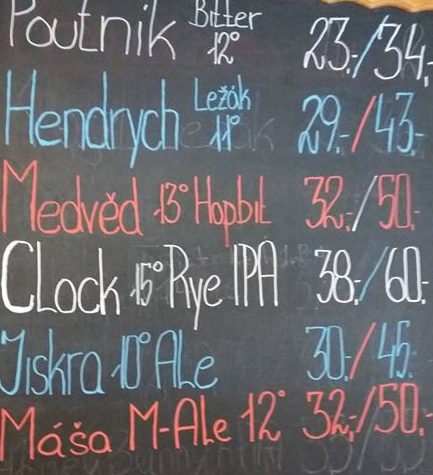 Poutník Bitter 12° 23.-/34.-
Hendrych Ležák 11° 29.-/43.-
Medvěd 13° Hopbit 32.-/50.-
Clock 15° Rye IPA 38.-/60.-
Jiskra 10° Ale 30.-/45.-
Máša M-Ale 12° 32.-/50.-